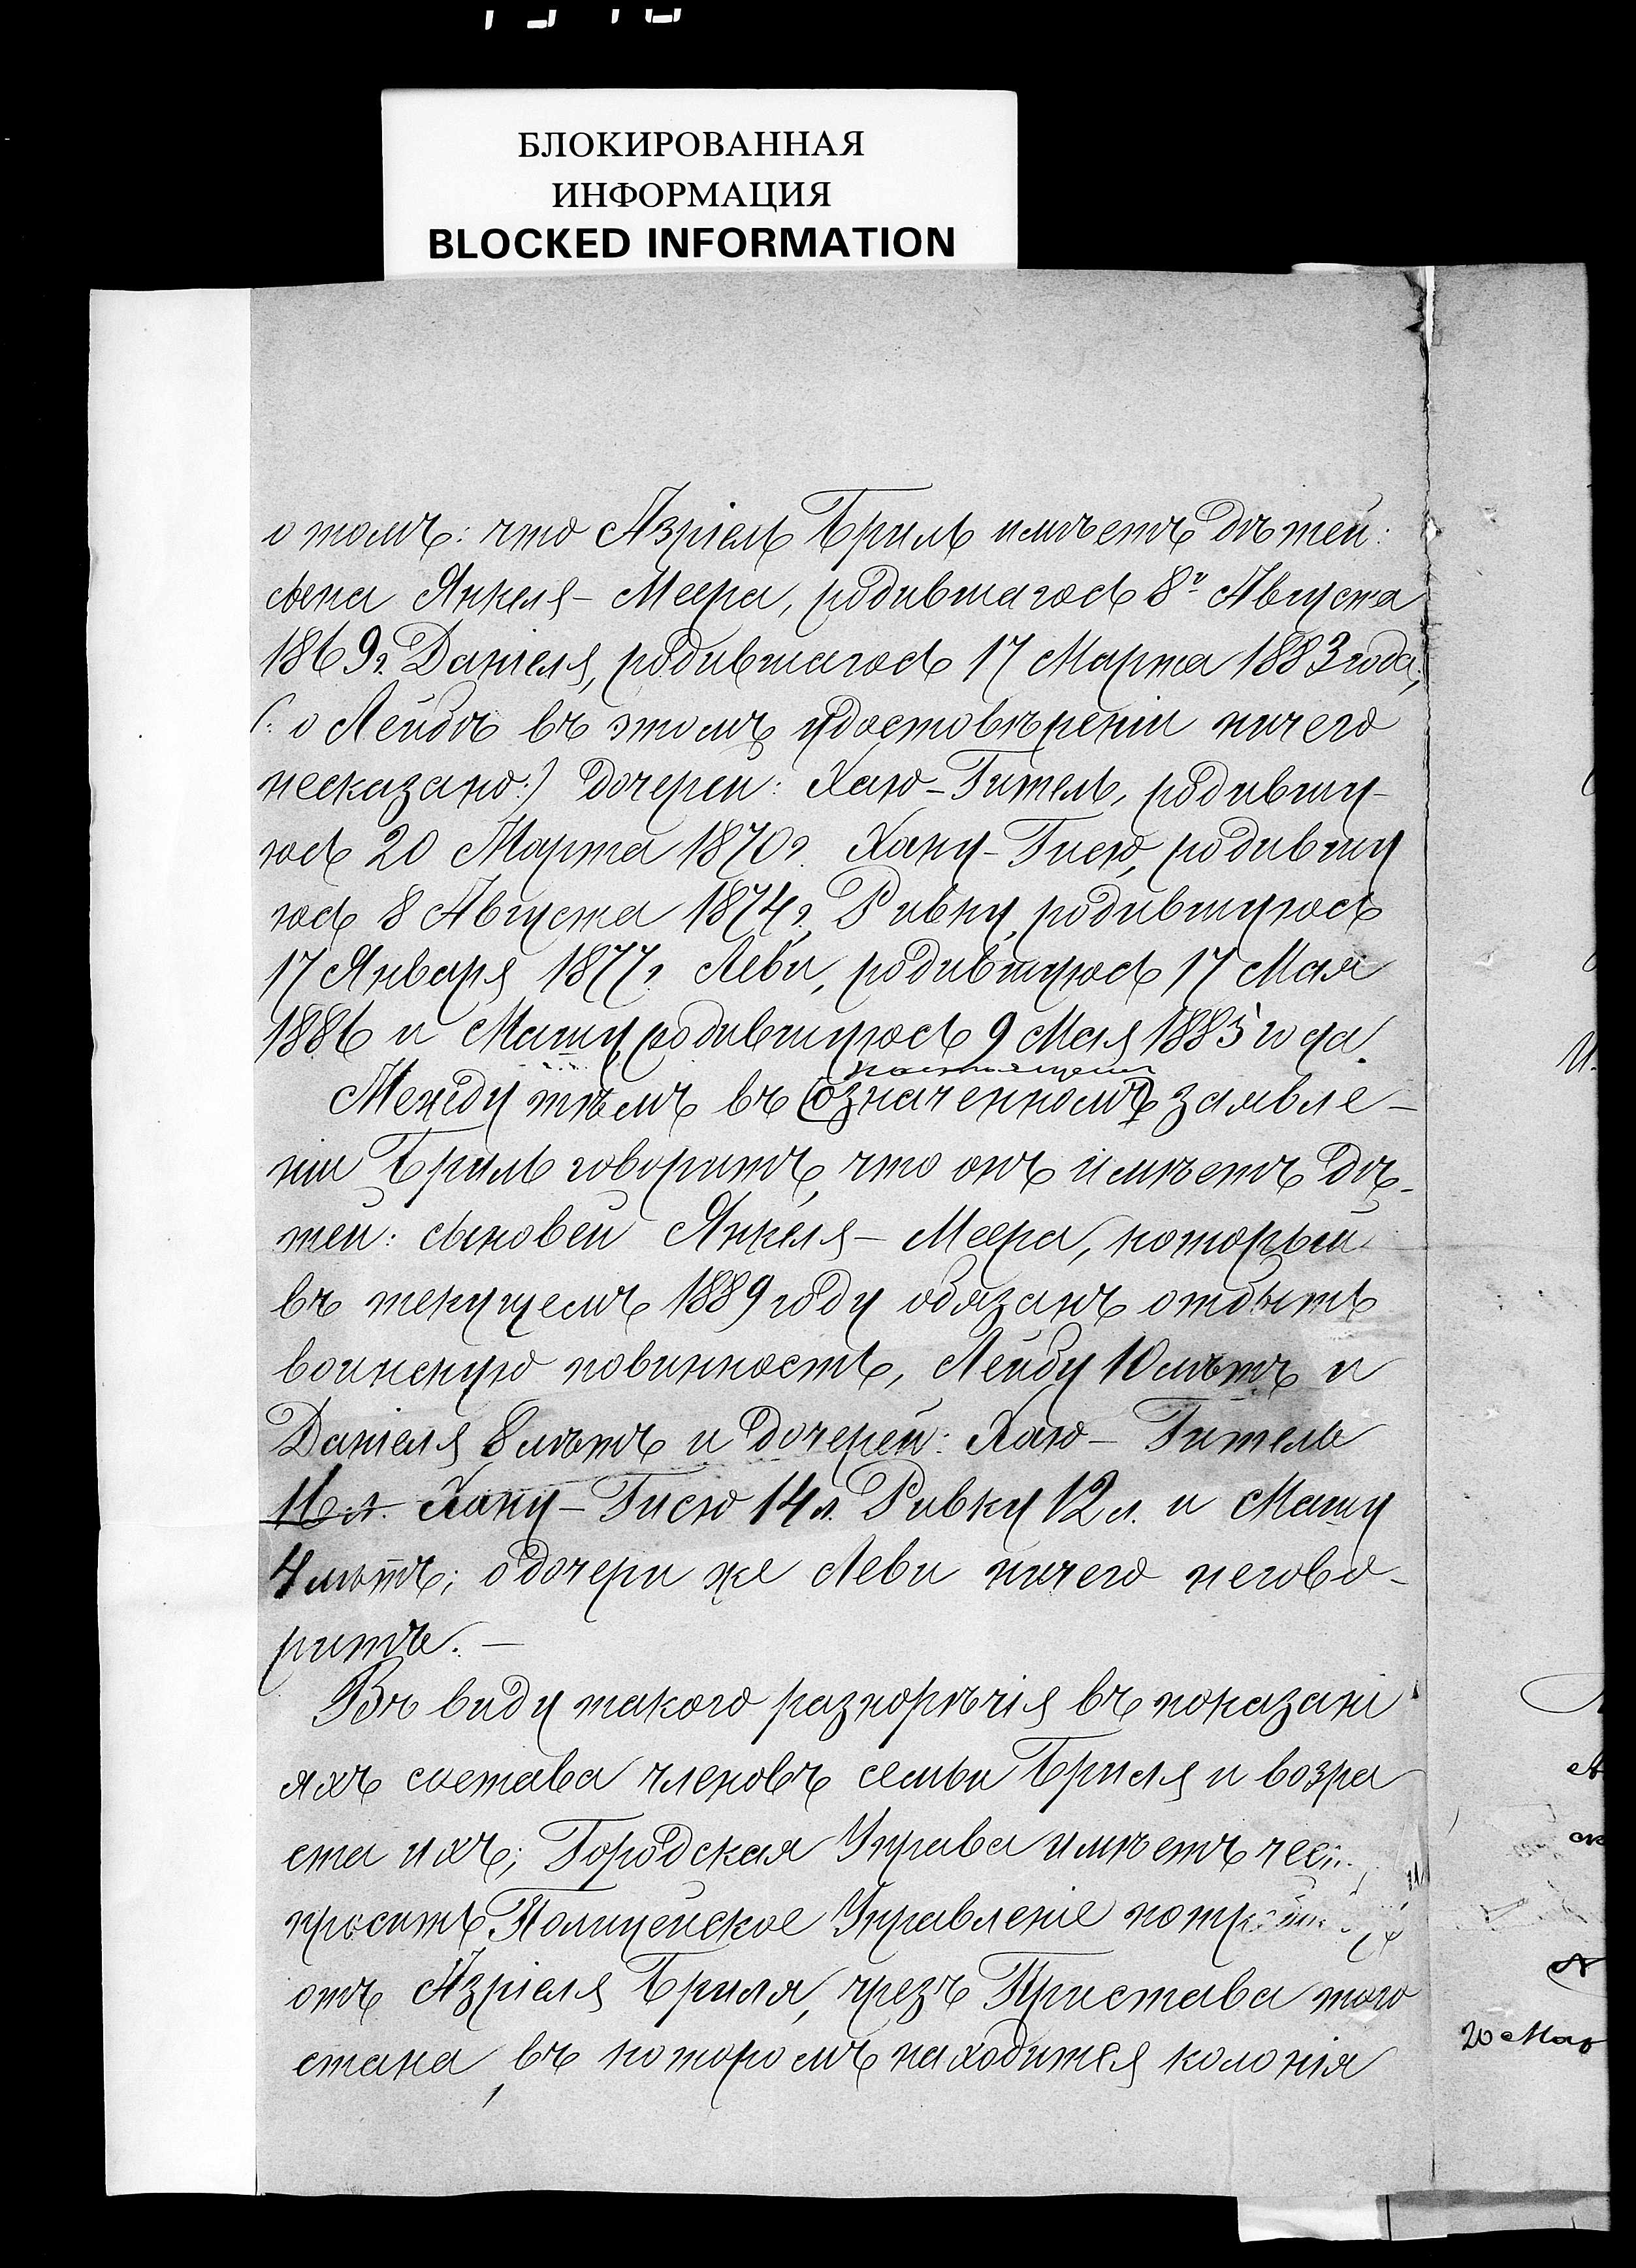 БЛОКИРОВАННАЯ
ИНФОРМАЦИЯ
BLOCKED INFORMATION
о томъ: что Азріель Бриль имѣетъ дѣтей:
сына Янкеля-Меера, родившагось 8го Августа
1869г. Даніеля, родившагось 17 Марта 1883 года,
(: о Лейбѣ въ этомъ удостовѣреніи ничего
несказано:) дочерей: Хаю-Гитель, родившу-
юсь 20 Марта 1870г. Хану-Гисю, родившу
юсь 8 Августа 1874г., Ривку, родившуюсь
17 Января 1877г. Леви, родившуюсь 17 Мая
1886 и Машу родившуюсь 9 Мая 1885 года.
настоящемъ
Между тѣмъ въ (означенномъ) заявле-
ніи Бриль говоритъ, что онъ имѣетъ дѣ-
тей: сыновей Янкеля-Меера, который
въ текущемъ 1889 году обязанъ отбыть
воинскую повинность, Лейбу 10 лѣтъ и
Даніеля 8 лѣтъ и дочерей: Хаю-Гитель
16 л. Хану-Гисю 14 л. Ривку 12 л. и Машу
4 лѣтъ; о дочери же Леви ничего негово-
ритъ. —
Въ виду такого разнорѣчія въ показані
яхъ состава членовъ семьи Бриля и возра
ста ихъ; Городская Управа имѣетъ
просить Полицейское Управленіе
отъ Азріеля Бриля, чрезъ Пристава того
стана, въ которомъ находится колонія
20 Мая